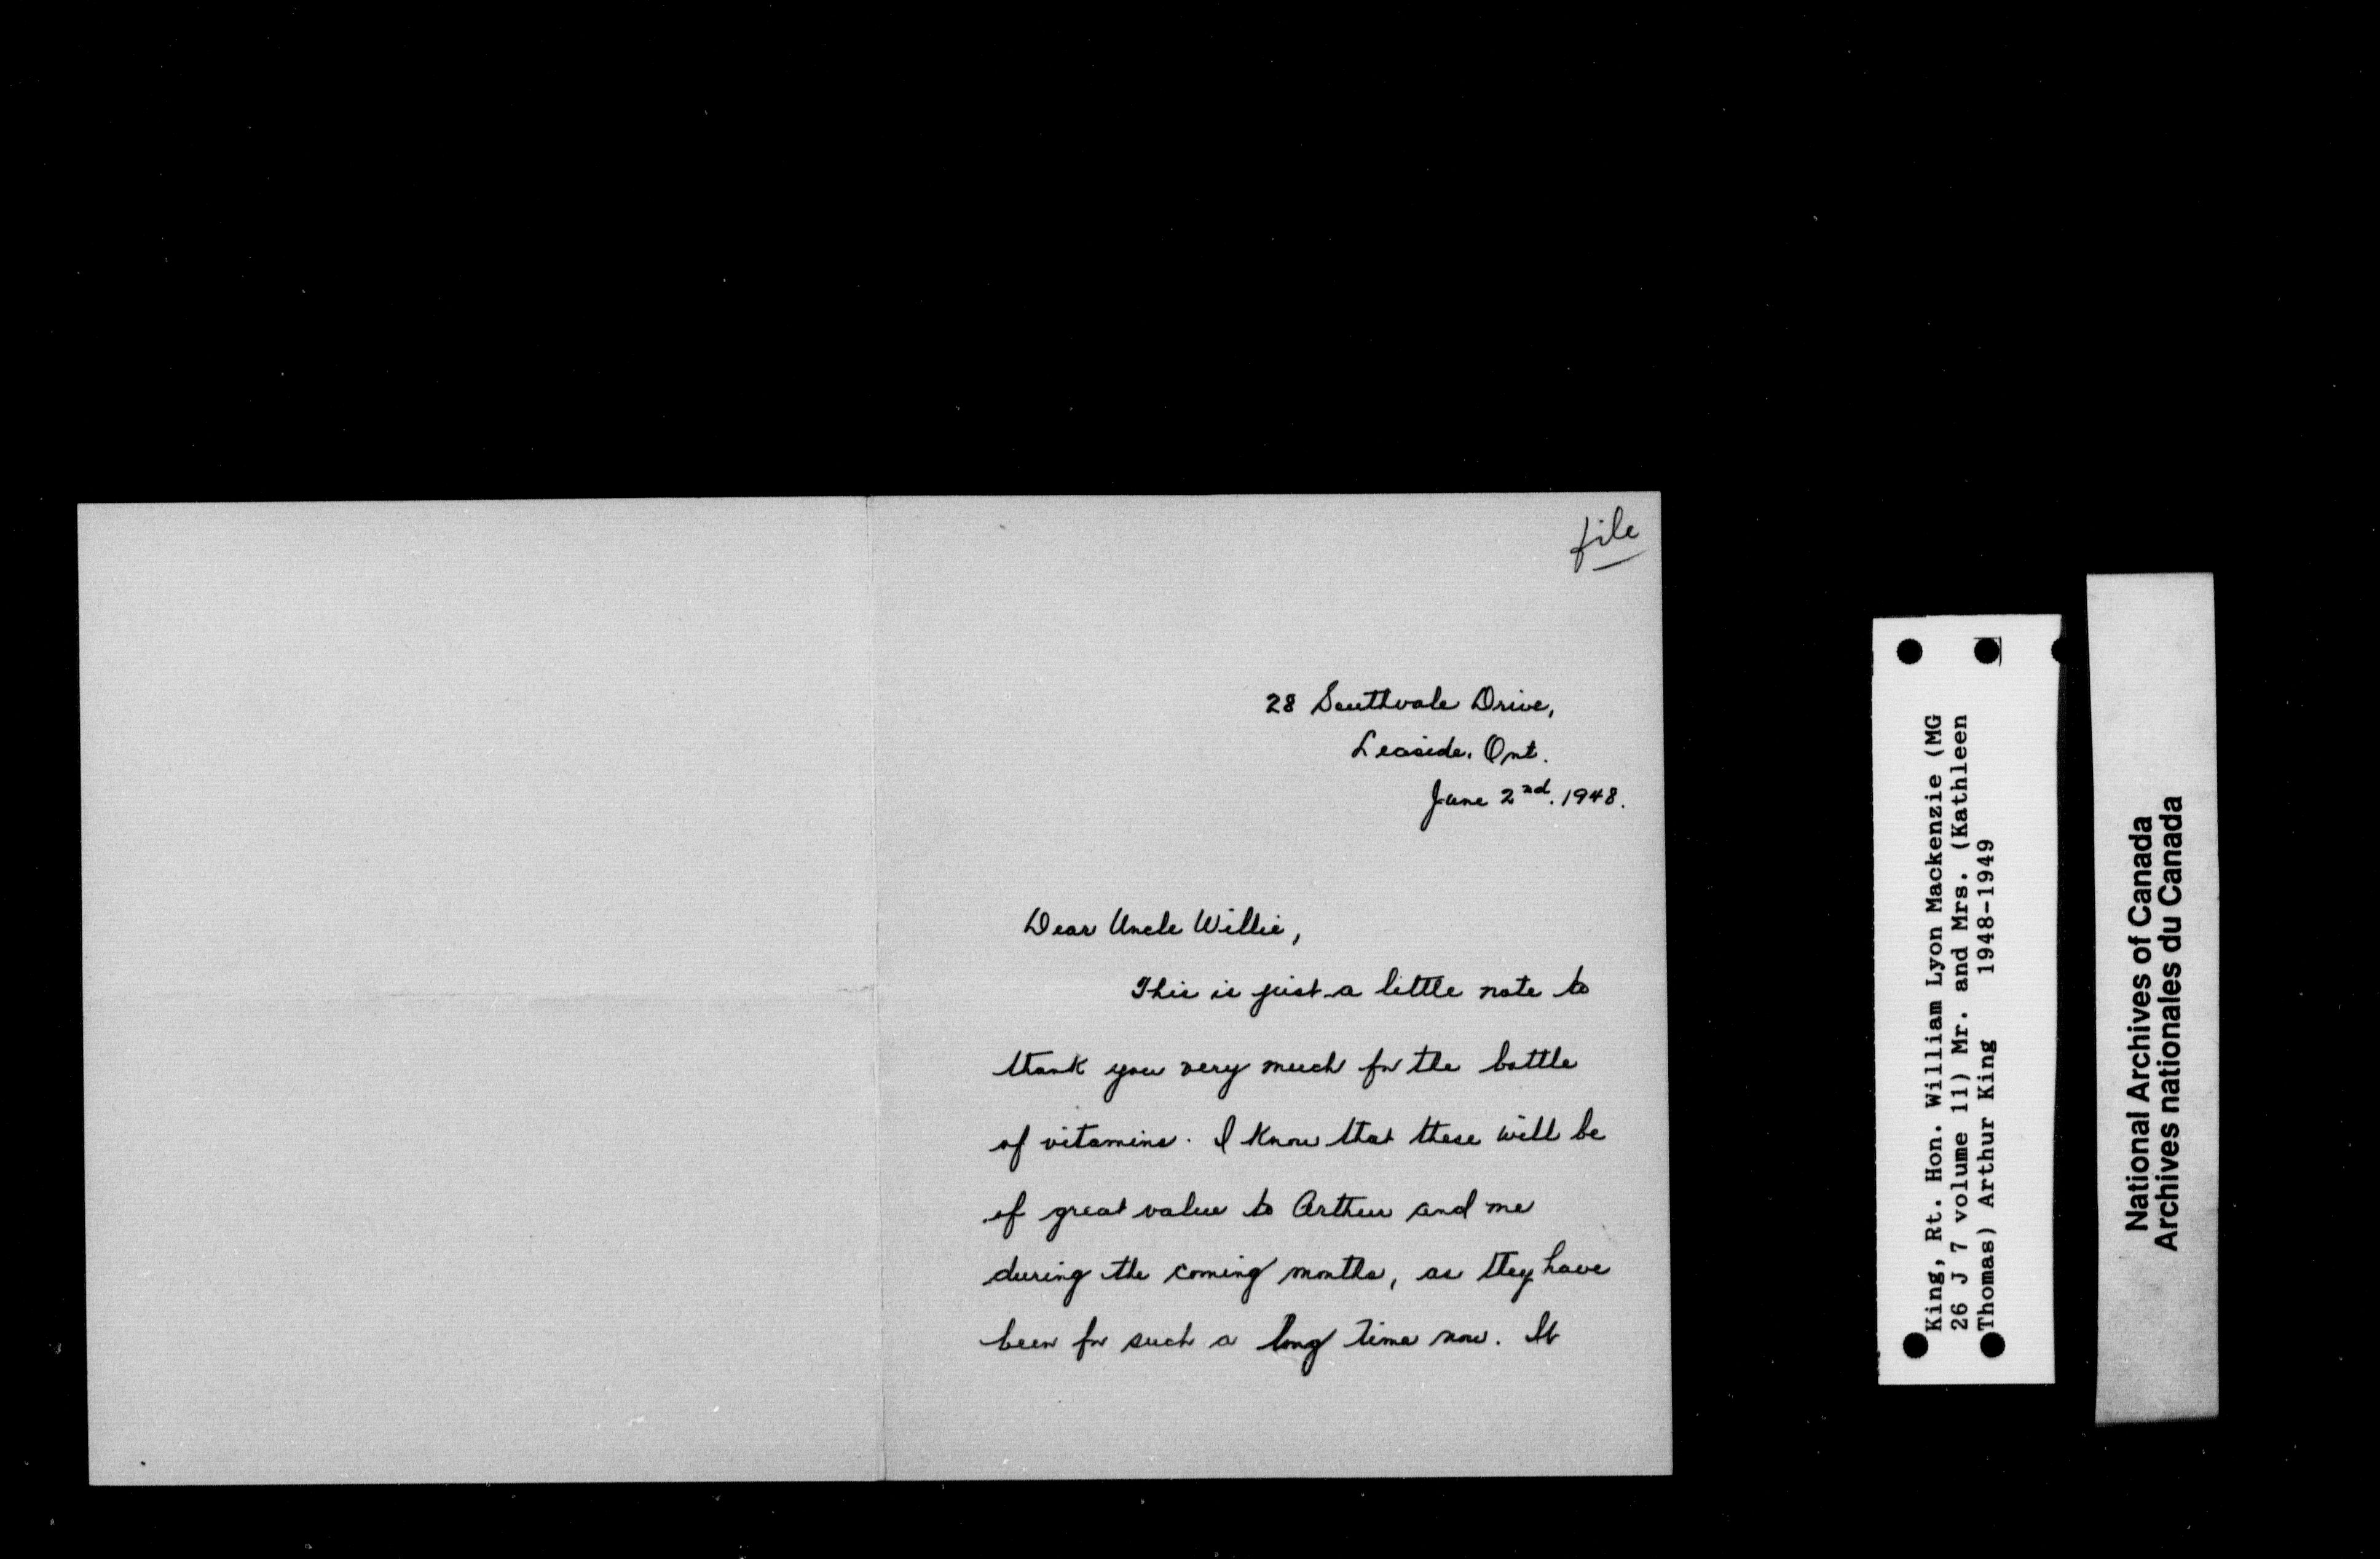 file
28 Southvale Drive,
Leaside, Ont.
June 2nd. 1948.
Dear Uncle Willie,
This is just a little note to
thank you very much for the bottle
of vitamins. I know that these will be
of great value to Arthur and me
during the coming months, as they have
been for such a long time now. It
King, Rt. Hon. William Lyon Mackenzie (MG
26 J 7 volume 11) Mr. and Mrs. (Kathleen
Thomas) Arthur King 1948-1949
National Archives of Canada
Archives nationales du Canada